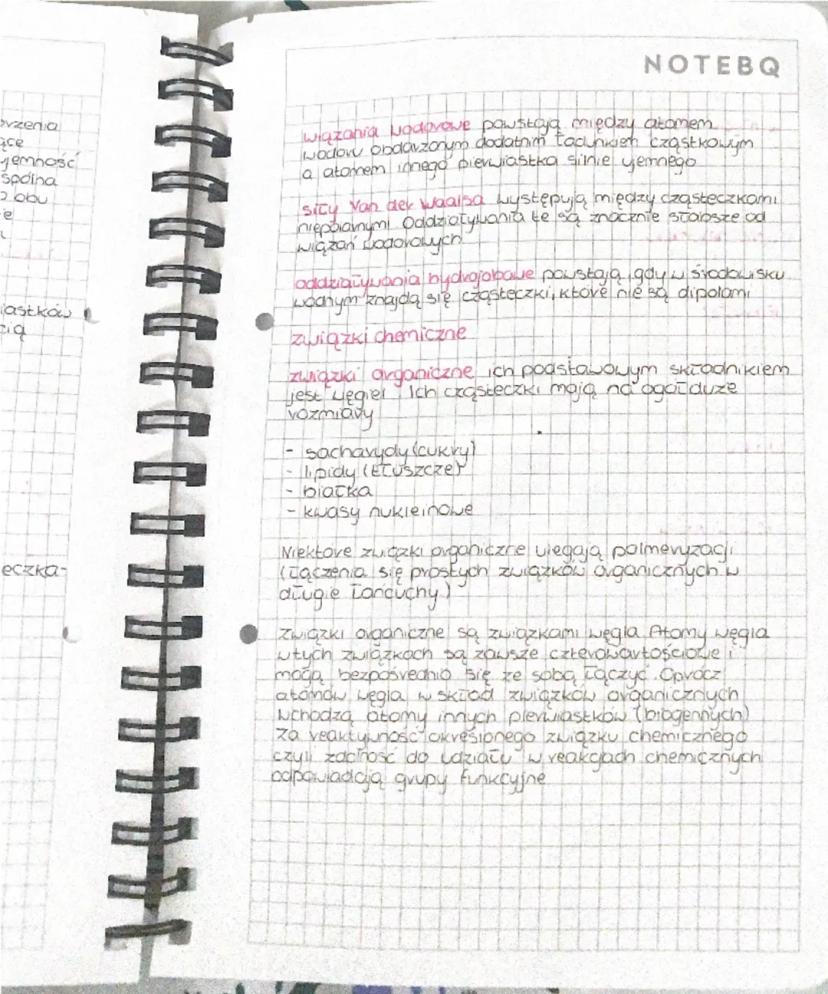 NOTEBQ
wiązania wodorowe powstają między atomem
wodoru obdarzonym dodatnim ładunkiem cząstkowym
a atomem innego pierwiastka silnie ujemnego
siły Van der Waalsa występują między cząsteczkami
niepolarnymi Oddziaływania te są znacznie słabsze od
wiązań wodorowych
oddziaływania hydrofobowe powstają, gdy w środowisku
wodnym znajdą się cząsteczki, które nie są dipolami
związki chemiczne
związki organiczne ich podstawowym składnikiem
jest węgiel. Ich cząsteczki mają na ogół duże
rozmiary
- sacharydy (cukry)
- lipidy (tłuszcze)
- białka
- kwasy nukleinowe
Niektóre związki organiczne ulegają polimeryzacji
(łączenia się prostych związków organicznych w
długie łańcuchy)
związki organiczne są związkami węgla Atomy węgla
w tych związkach są zawsze czterowartościowe i
mogą bezpośrednio się ze sobą łączyć. Oprócz
atomów węgla w skład związków organicznych
wchodzą atomy innych pierwiastków (biogennych)
za reaktywność określonego związku chemicznego
czyli zdolność do udziału w reakcjach chemicznych
odpowiadają grupy funkcyjne